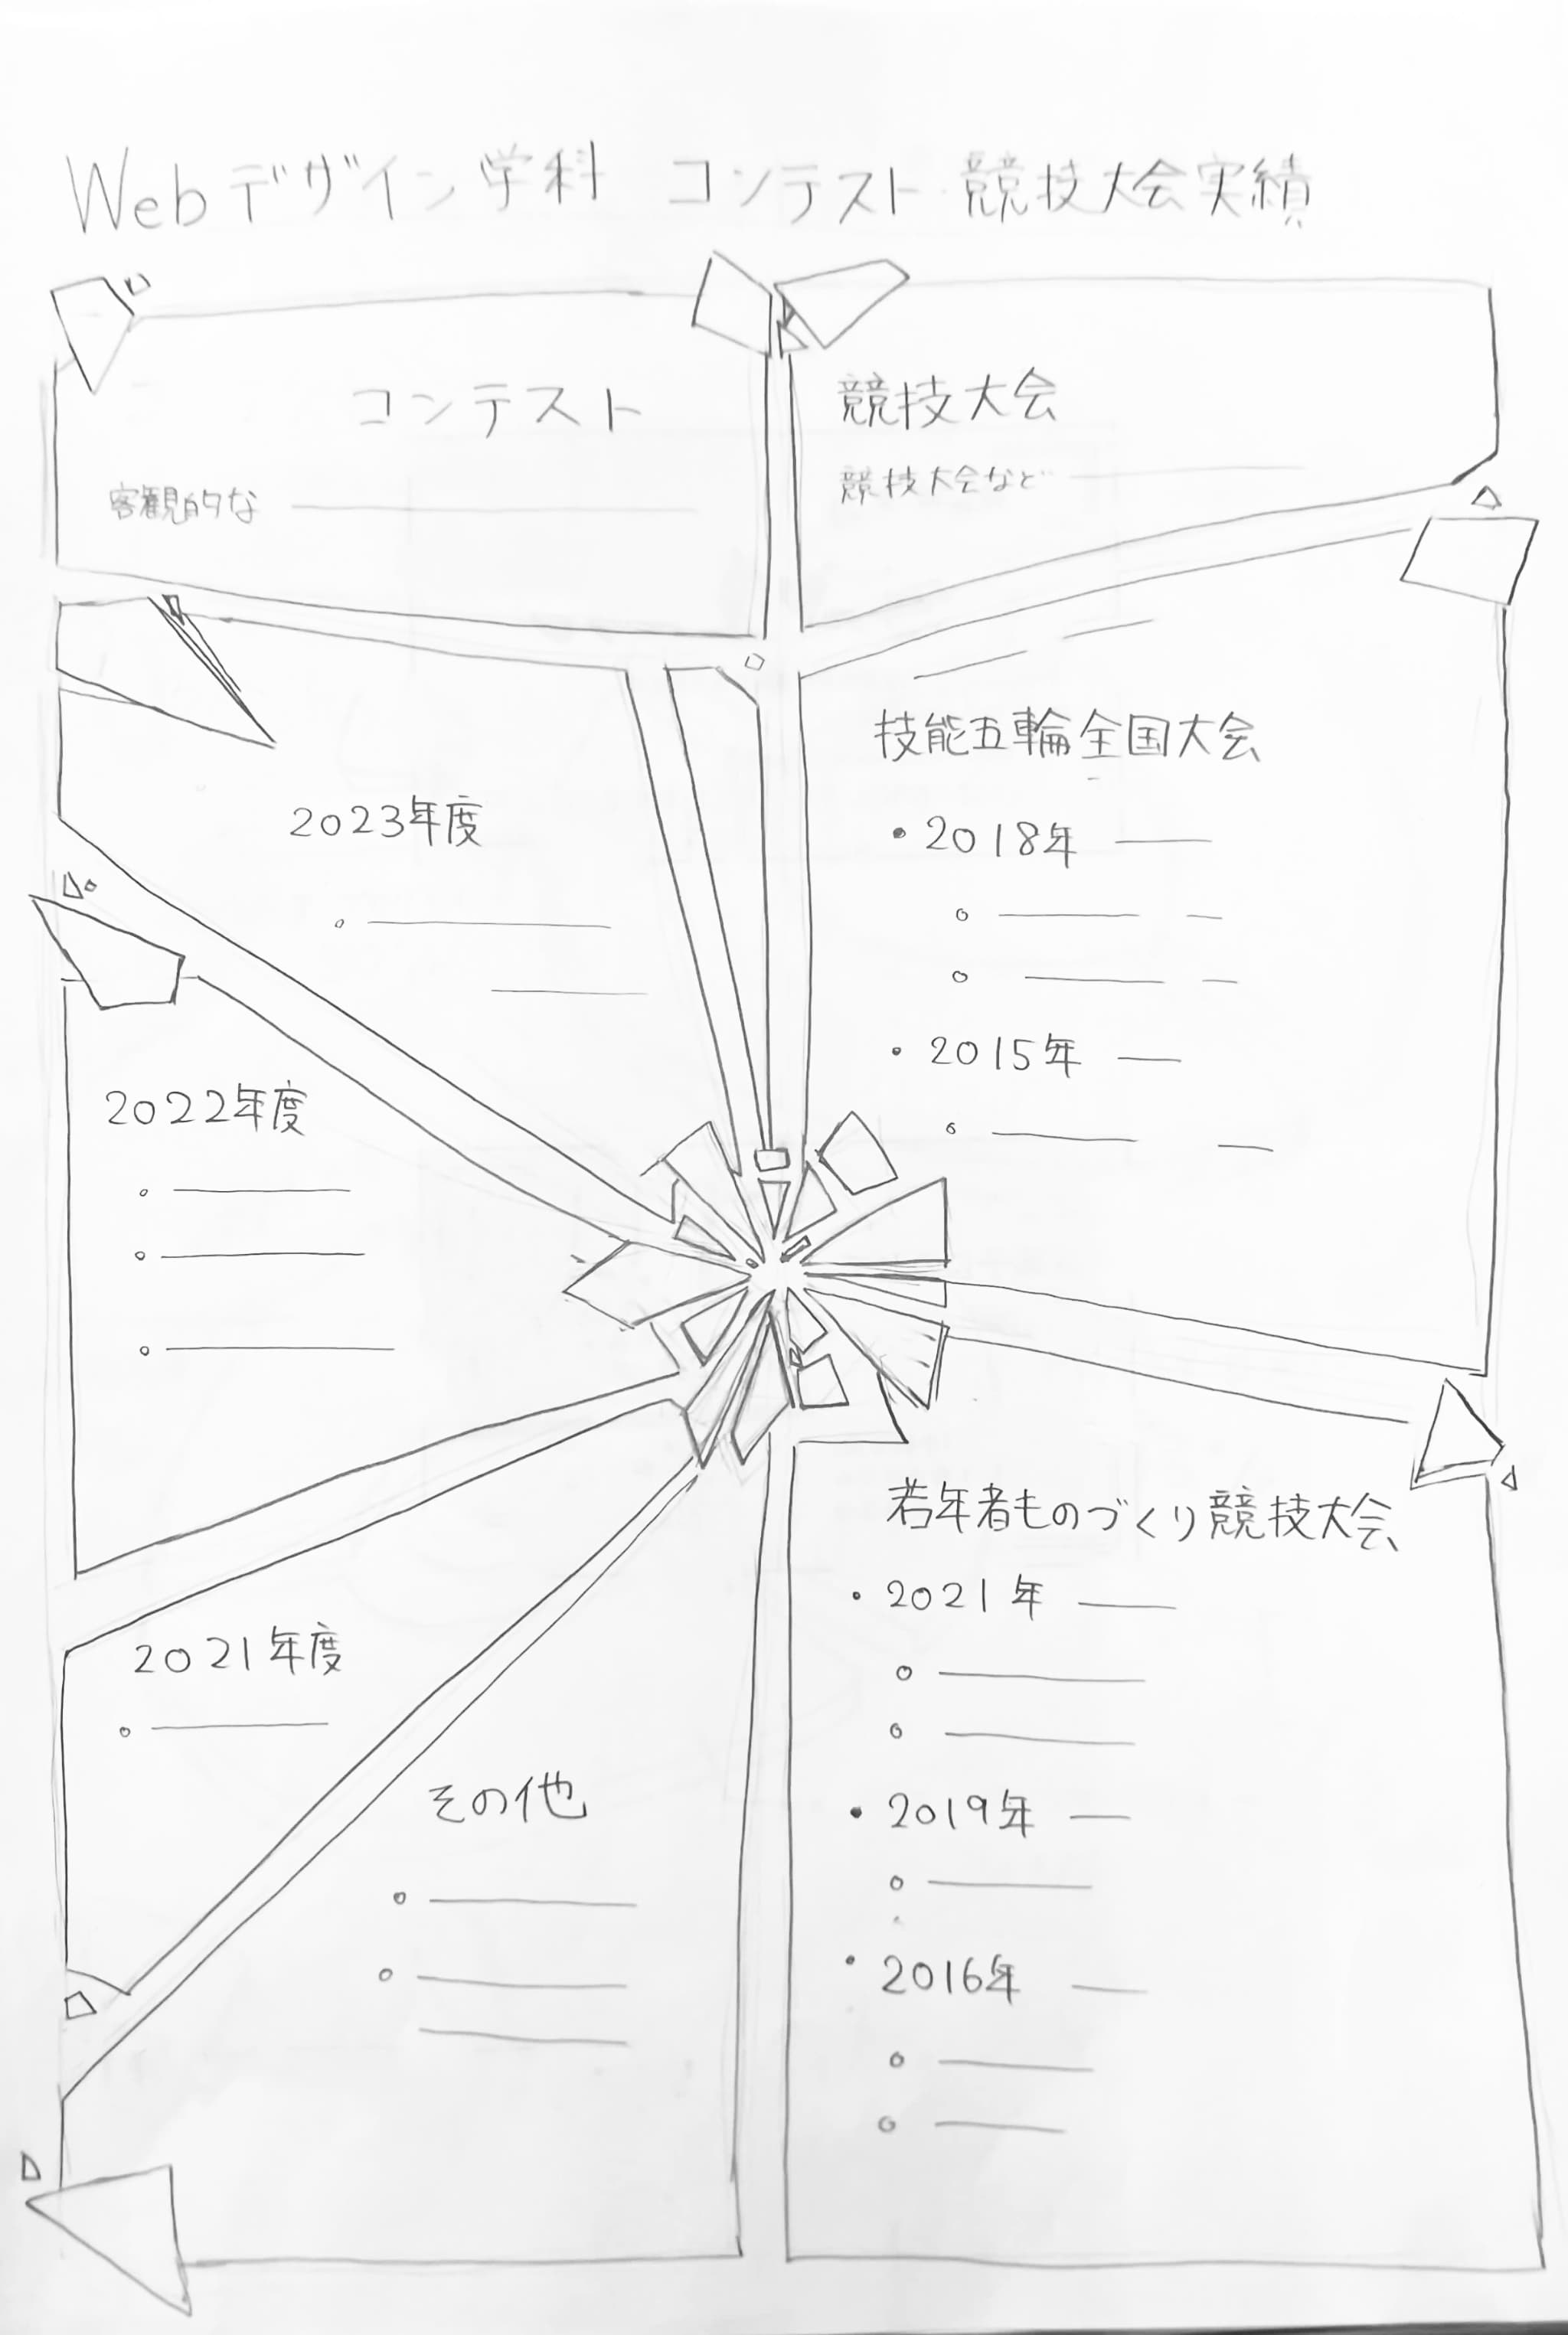 Webデザイン学科 コンテスト・競技大会実績
コンテスト
客観的な
2023年度
2022年度
2021年度
その他
競技大会
競技大会など
技能五輪全国大会
・2018年
・2015年
若年者ものづくり競技大会
・2021年
・2019年
・2016年